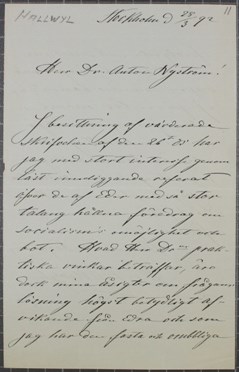 HALLWYL
11
Stockholm d 28/3 92
Herr Dr. Anton Nyström!
I besittning af värderade
skrifvelse af den 26 ds har
jag med stort intresse genom
läst innliggande referat
öfver de af Eder med så stor
talang hållna föredrag om
socialismens möjlighet och
bot. Hvad Herr Drs prak-
tiska vinkar beträffar, äro
dock mina åsigter om frågans
lösning högst betydligt af-
vikande från Edra och som
jag har den fasta och